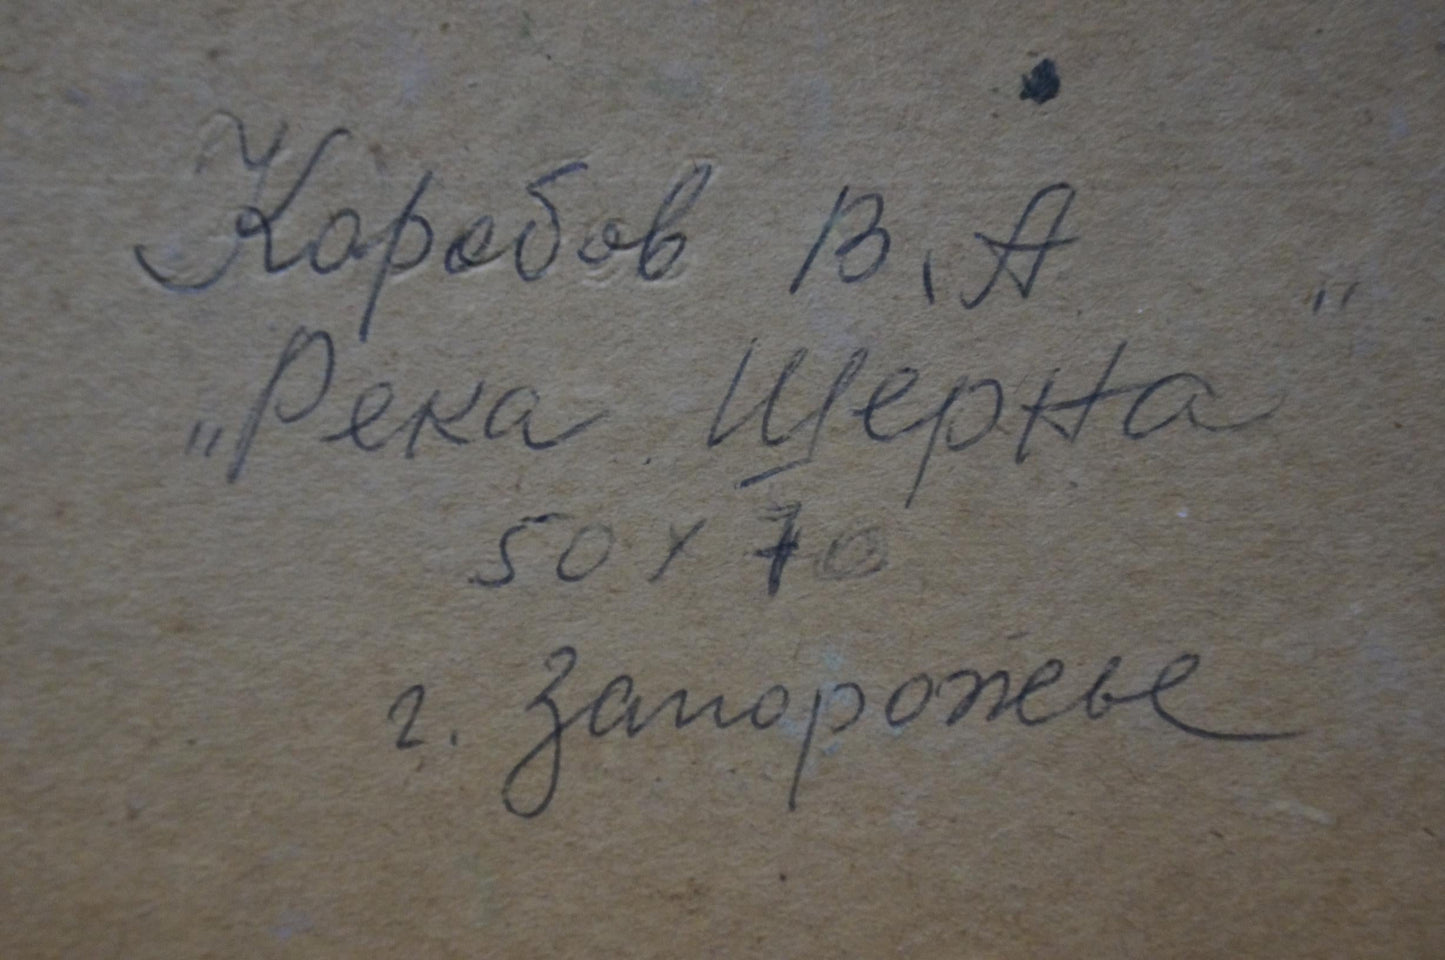 Коробов В. А
„Река Шерна"
50 х 70
г. Запорожье